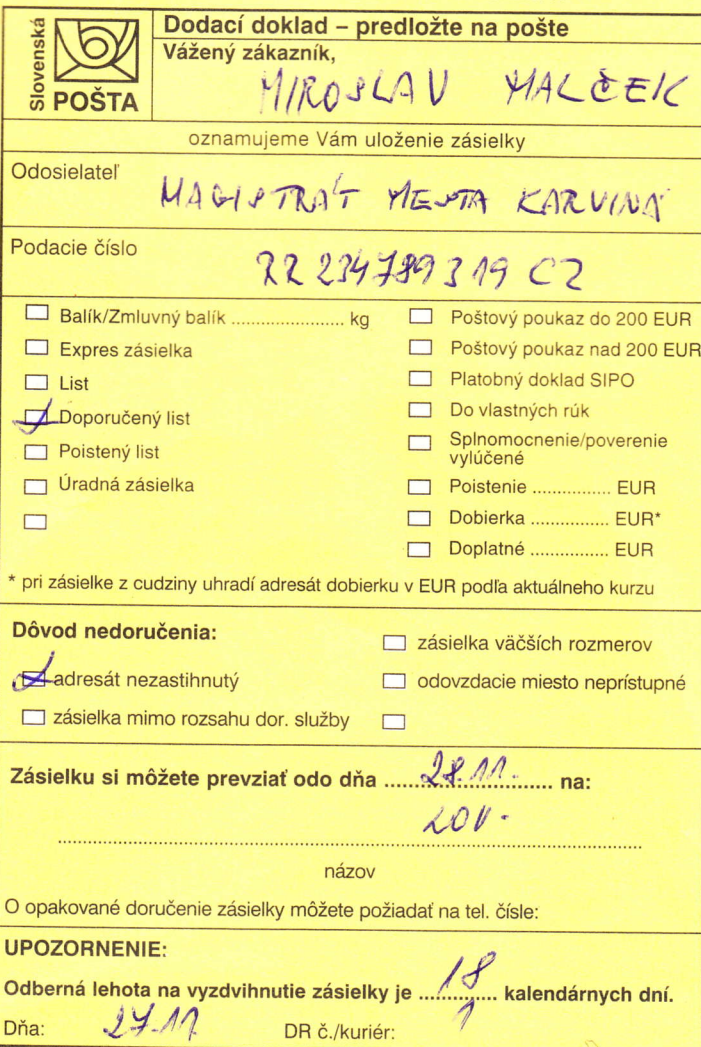 Slovenská
POŠTA
Dodací doklad – predložte na pošte
Vážený zákazník,
MIROSLAV MALČEK
oznamujeme Vám uloženie zásielky
Odosielateľ
MAGISTRÁT MESTA KARVINÁ
Podacie číslo
RR 234789319 CZ
Balík/Zmluvný balík ...................... kg
Expres zásielka
List
Doporučený list
Poistený list
Úradná zásielka
Poštový poukaz do 200 EUR
Poštový poukaz nad 200 EUR
Platobný doklad SIPO
Do vlastných rúk
Splnomocnenie/poverenie
vylúčené
Poistenie ............... EUR
Dobierka ............... EUR*
Doplatné ............... EUR
* pri zásielke z cudziny uhradí adresát dobierku v EUR podľa aktuálneho kurzu
Dôvod nedoručenia:
adresát nezastihnutý
zásielka mimo rozsahu dor. služby
zásielka väčších rozmerov
odovzdacie miesto neprístupné
Zásielku si môžete prevziať odo dňa 28.11. na:
názov
O opakované doručenie zásielky môžete požiadať na tel. čísle:
UPOZORNENIE:
Odberná lehota na vyzdvihnutie zásielky je 18 kalendárnych dní.
Dňa: 27.11 DR č./kuriér: 1